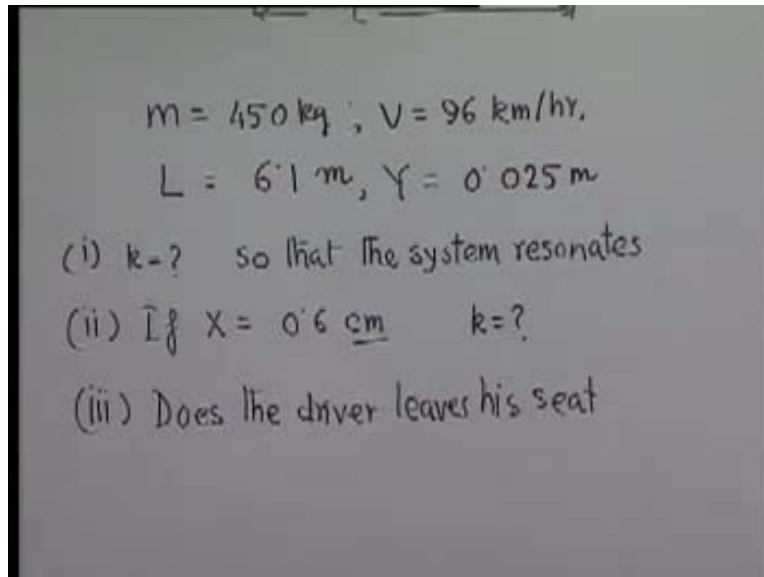 L
m = 450 kg ; V = 96 km/hr.
L = 6·1 m, Y = 0·025 m
(i) k = ? so that the system resonates
(ii) If X = 0·6 cm k = ?
(iii) Does the driver leaves his seat